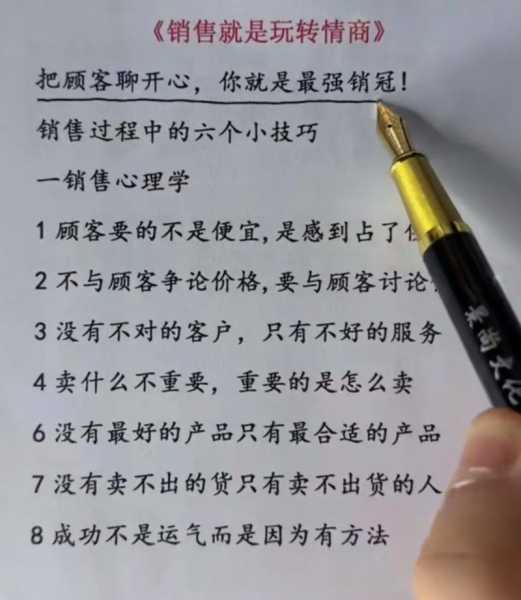 《销售就是玩转情商》
把顾客聊开心，你就是最强销冠！
销售过程中的六个小技巧
一销售心理学
1 顾客要的不是便宜,是感到占了
2 不与顾客争论价格,要与顾客讨论
3 没有不对的客户，只有不好的服务
4 卖什么不重要，重要的是怎么卖
6 没有最好的产品只有最合适的产品
7 没有卖不出的货只有卖不出货的人
8 成功不是运气而是因为有方法
景尚文化